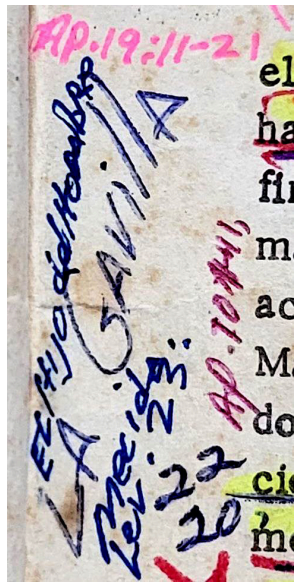 Ap.19:11-21
EL Hijo del HombRe
LA GAVillA
Mecida
Lev. 23:
22
20,
Ap. 10
el
ha
fin
ma
ac
Ma
do
cie
me